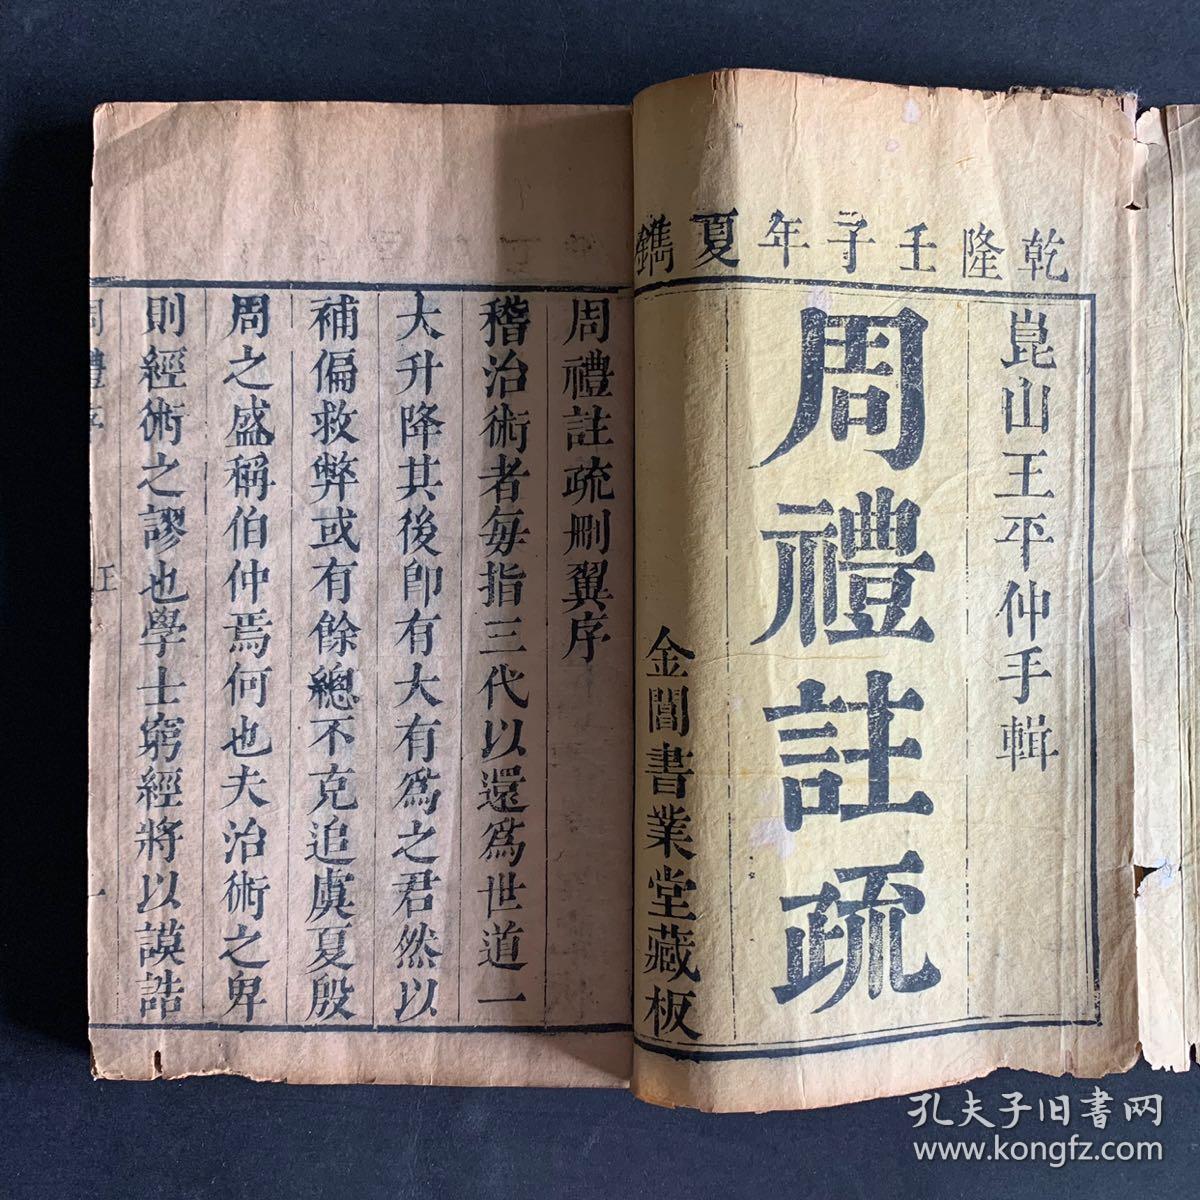 乾隆壬子年夏鐫
崑山王平仲手輯
周禮註疏
金閶書業堂藏板
周禮註疏刪翼序
稽治術者每指三代以還為世道一
大升降其後即有大有為之君然以
補偏救弊或有餘總不克追虞夏殷
周之盛稱伯仲焉何也夫治術之卑
則經術之謬也學士窮經將以謨誥
周禮序
一
孔夫子旧书网
www.kongfz.com